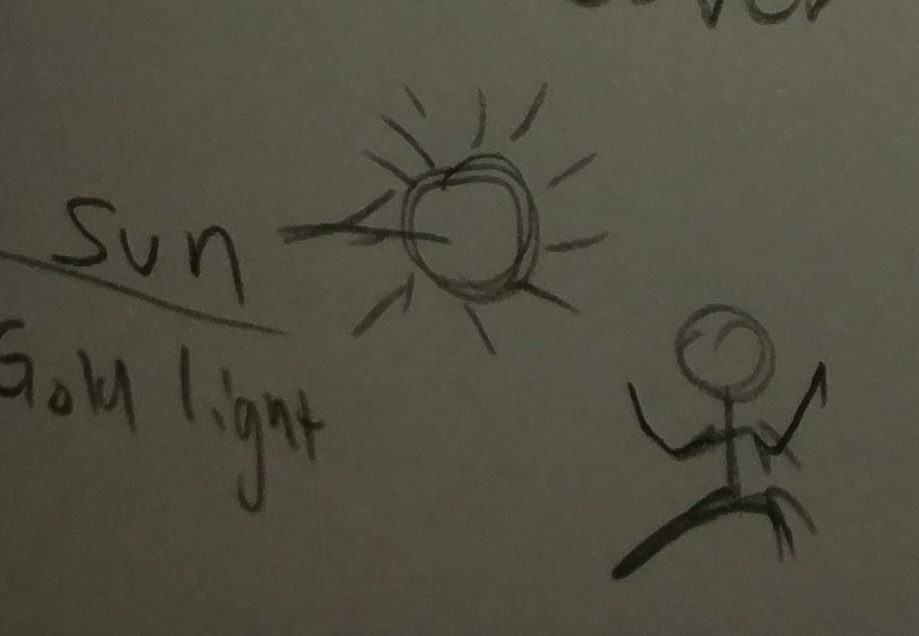 Sun
Gold light